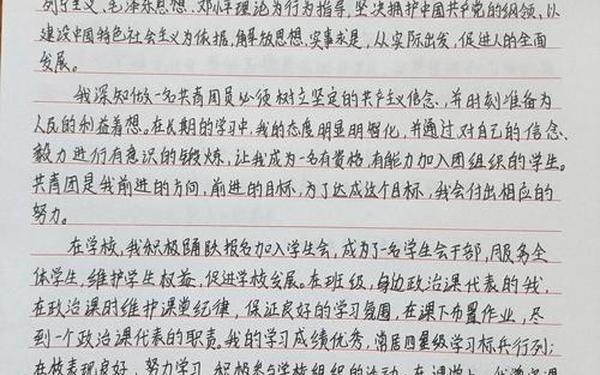 列宁主义、毛泽东思想、邓小平理论为行为指导,坚决拥护中国共产党的纲领,以
建设中国特色社会主义为依据,解放思想,实事求是,从实际出发,促进人的全面
发展。
我深知做一名共青团员必须树立坚定的共产主义信念,并时刻准备为
人民的利益着想。在长期的学习中,我的态度明显明智化,并通过对自己的信念、
毅力进行有意识的锻炼,让我成为一名有资格,有能力加入团组织的学生。
共青团是我前进的方向,前进的目标,为了达成这个目标,我会付出相应的
努力。
在学校,我积极踊跃报名加入学生会,成为了一名学生会干部,服务全
体学生,维护学生权益,促进学校发展。在班级,身边政治课代表的我,
在政治课时维护课堂纪律,保证良好的学习氛围,在课下布置作业,尽
到一个政治课代表的职责。我的学习成绩优秀,常居四星级学习标兵行列;
在校表现良好,努力学习,积极参与学校组织的活动。在课堂上,我遵守课